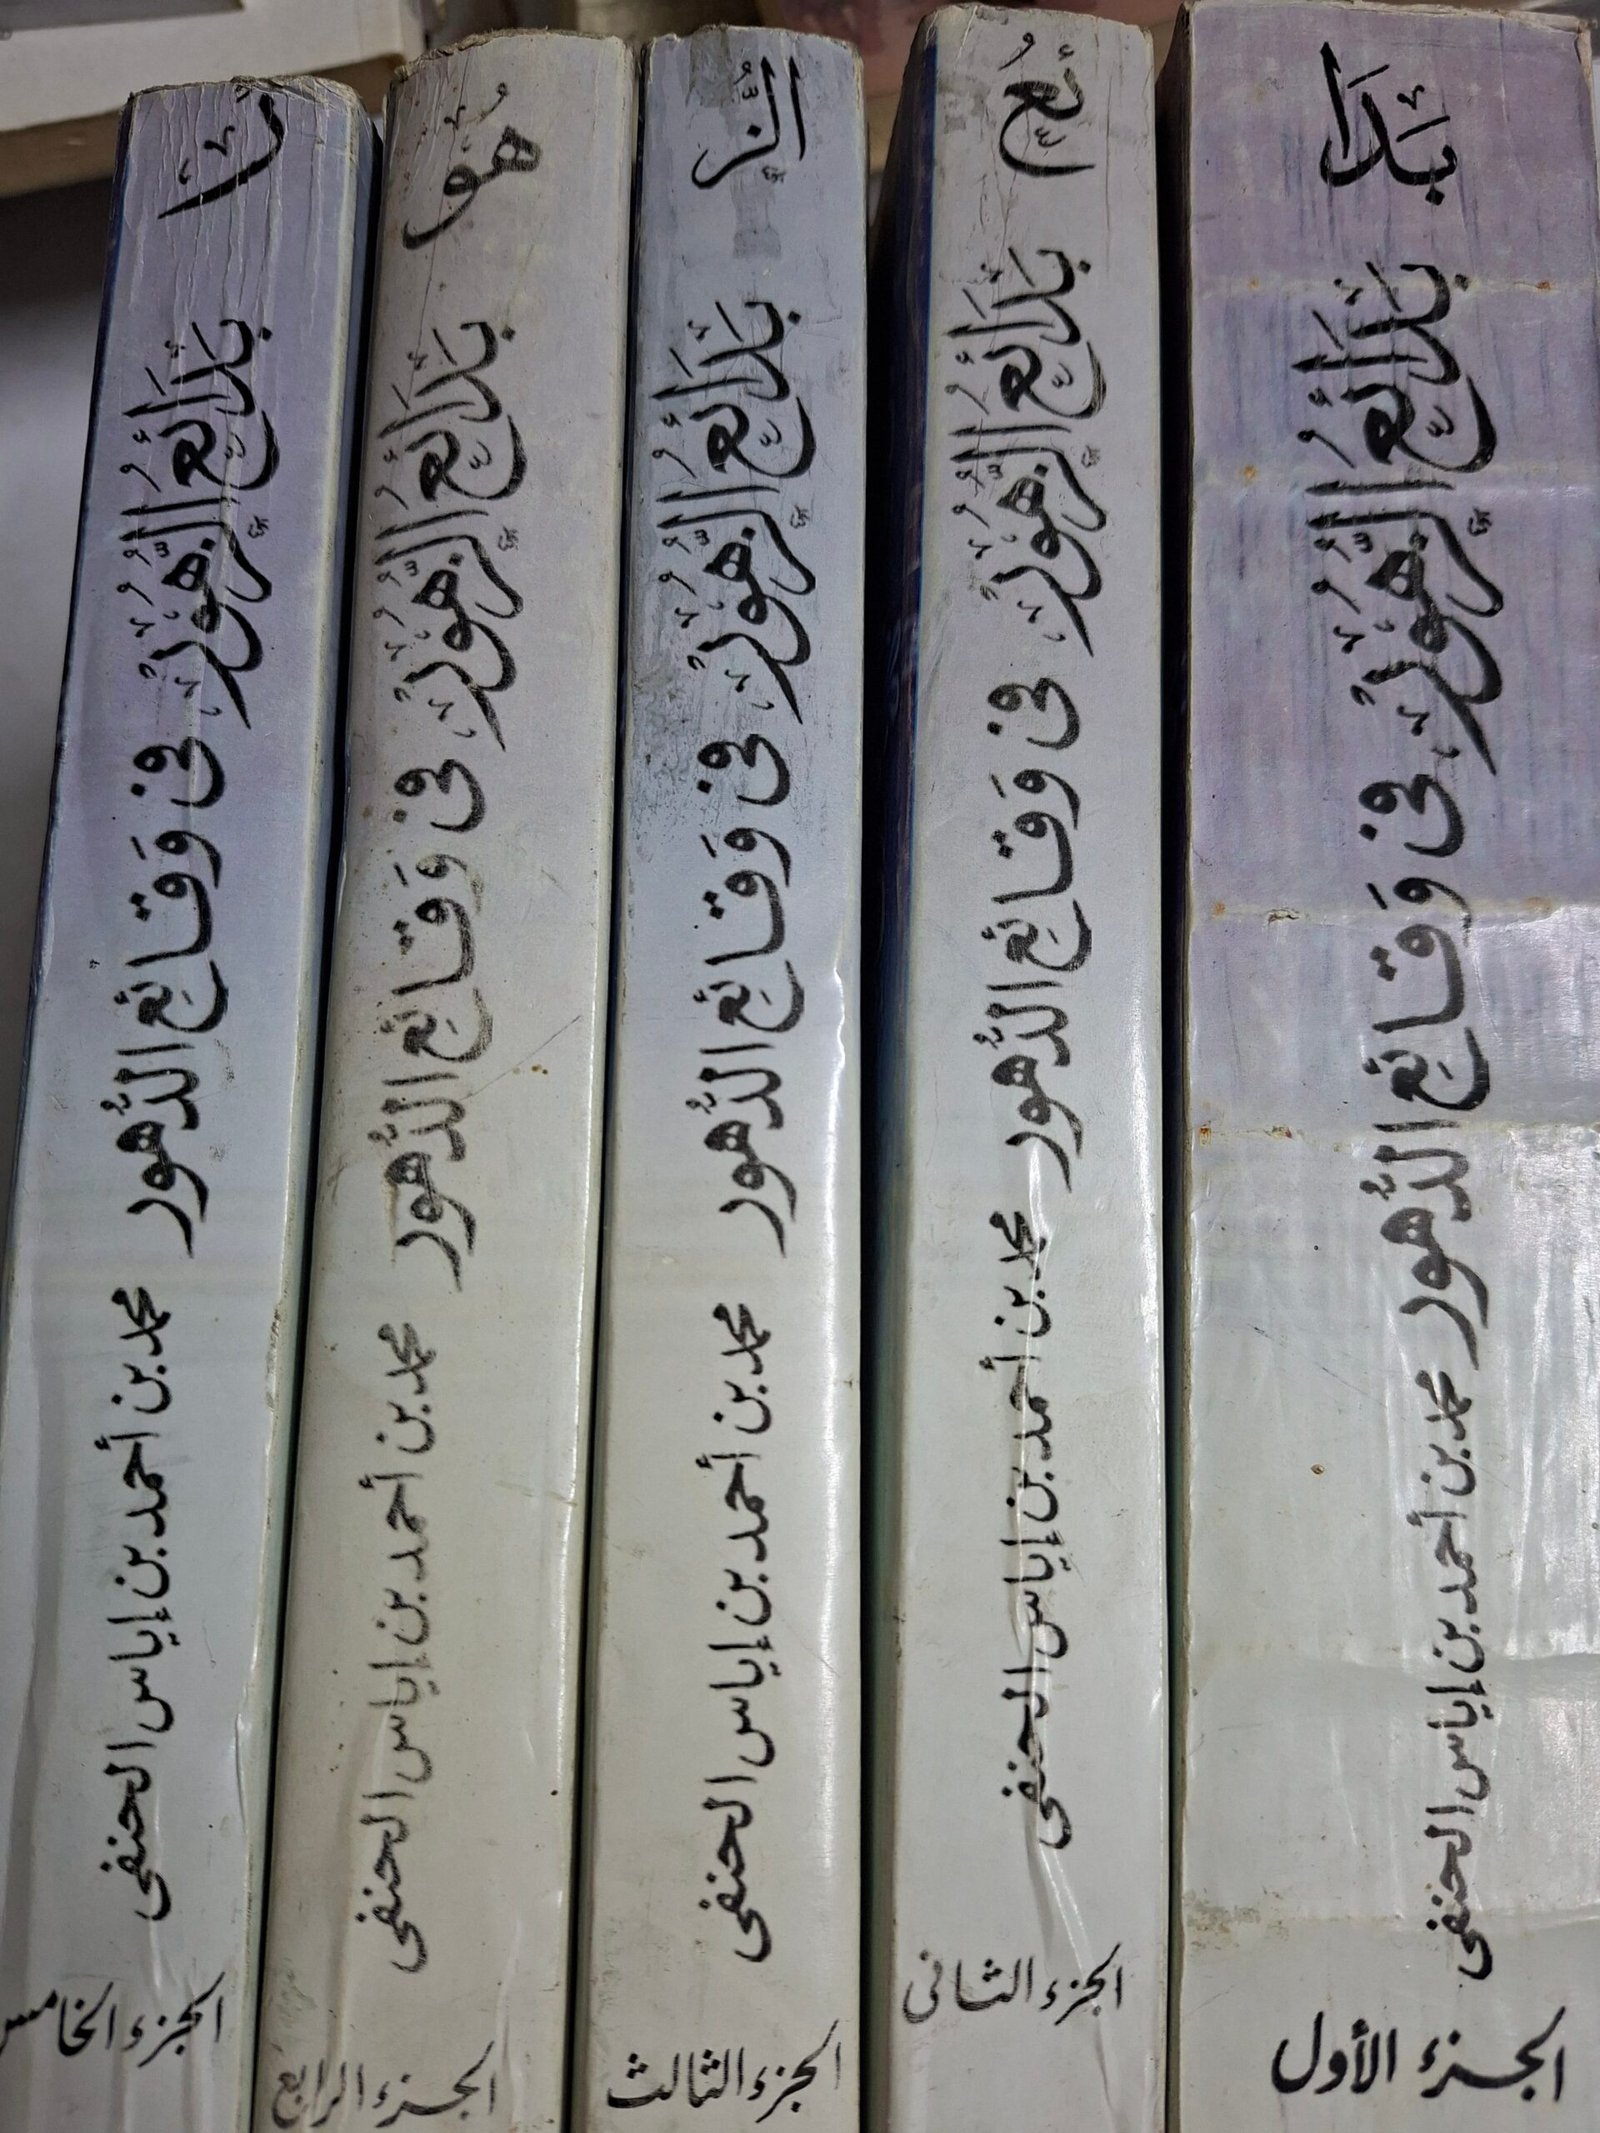 بَدَا
بَدَائِعُ الزُّهُورِ فى وَقَائِعِ الدُّهور
محمد بن أحمد بن إياس الحنفى
الجزء الأول
ئِعُ
بَدَائِعُ الزُّهُورِ فى وَقَائِعِ الدُّهور
محمد بن أحمد بن إياس الحنفى
الجزء الثانى
الزُّ
بَدَائِعُ الزُّهُورِ فى وَقَائِعِ الدُّهور
محمد بن أحمد بن إياس الحنفى
الجزء الثالث
هُو
بَدَائِعُ الزُّهُورِ فى وَقَائِعِ الدُّهور
محمد بن أحمد بن إياس الحنفى
الجزء الرابع
ر
بَدَائِعُ الزُّهُورِ فى وَقَائِعِ الدُّهور
محمد بن أحمد بن إياس الحنفى
الجزء الخامس